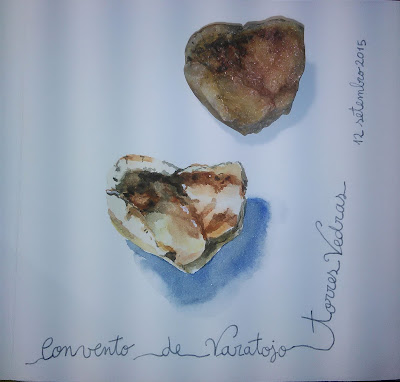 Convento de Varatojo
Torres Vedras
12 setembro 2015